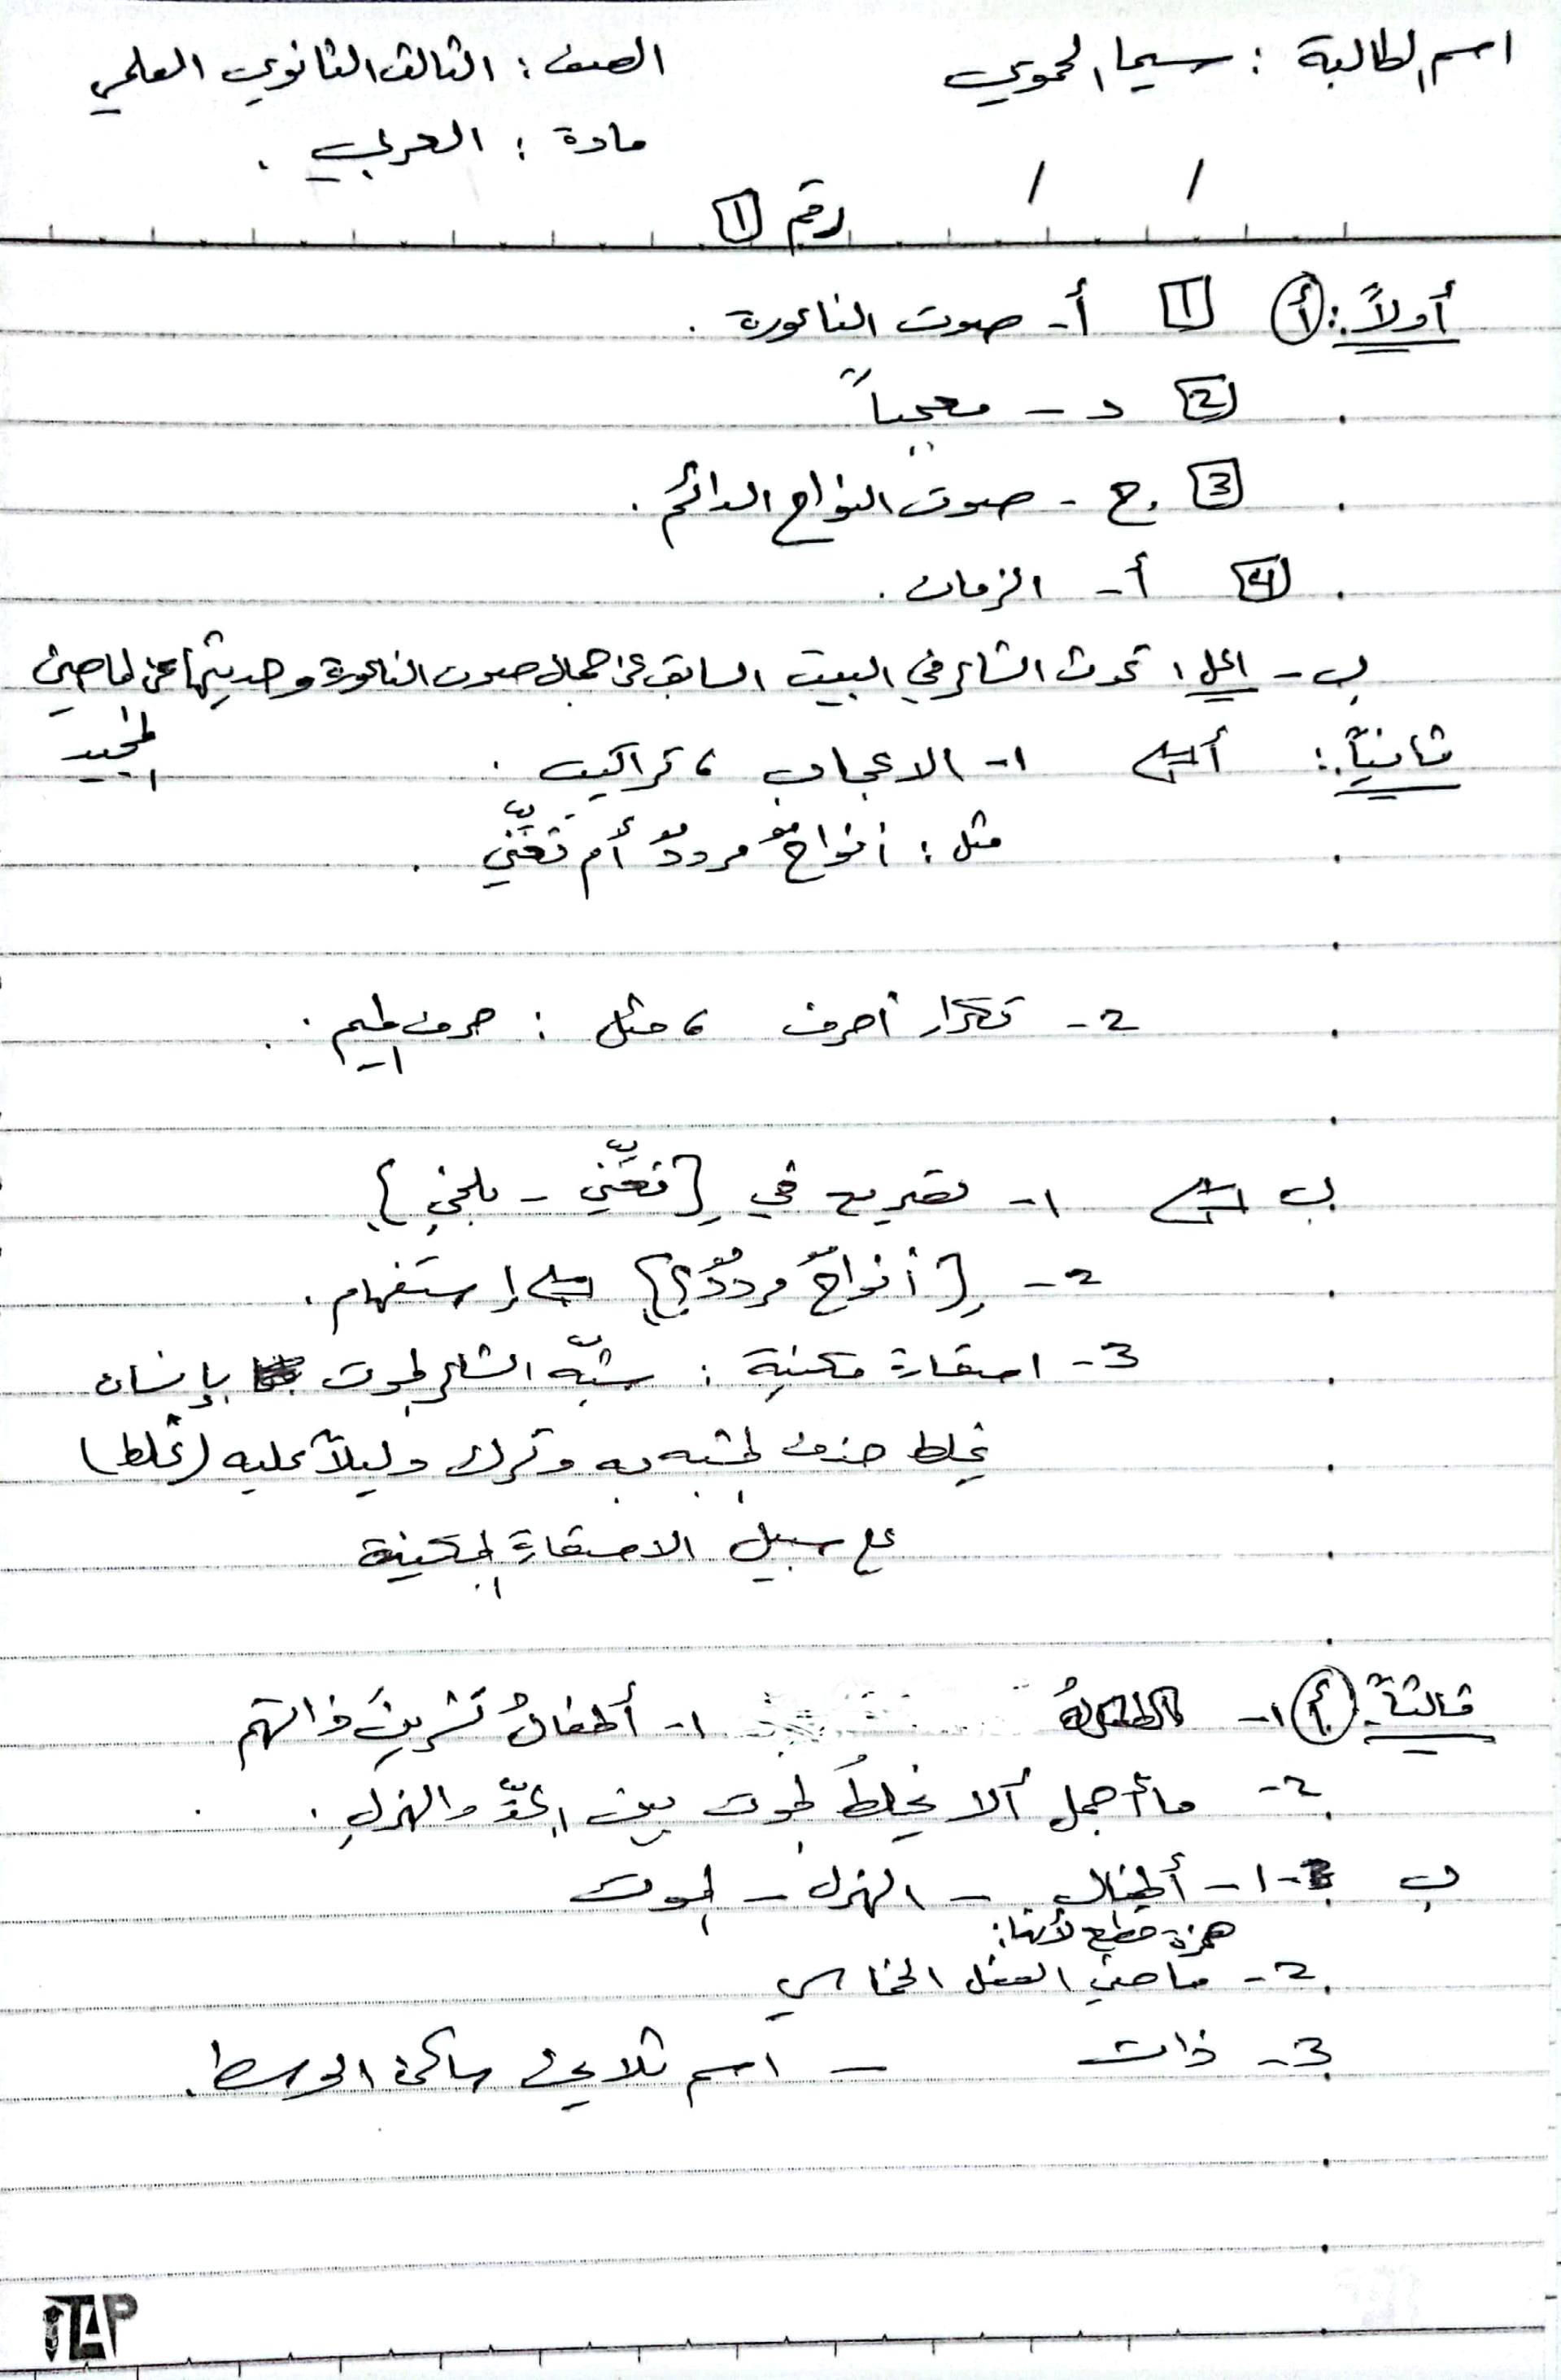 اسم الطالبة : سيما الحموي
الصف : الثالث الثانوي العلمي
مادة : العربي .
/ /
رقم 1
أولاً : أ 1 أ - صوت الناعورة .
2 د - معجباً
3 ج - صوت النواح الدائم .
4 أ - الزمان .
ب - الحل : تحدث الشاعر في البيت السابق عن جمال صوت الناعورة وحديثها عن الماضي المجيد
ثانياً : أ ⇐ 1 - الاعجاب ، تراكيب .
مثل : أنواحٌ مرددٌ أم تغنّي .
2 - تكرار أحرف ، مثل : حرف الميم .
ب ⇐ 1 - تصريع في [ تغنّي - يلحني ]
2 - [ أنواحٌ مرددٌ ؟ ] ⇐ إستفهام .
3 - استعارة مكنية : شبّه الشاعر الموت بإنسان
يخلط حذف المشبه به وترك دليلاً عليه ( يخلط )
على سبيل الاستعارة المكنية
ثالثاً : أ 1 - 1 - أطفالُ تشرينَ ذاتهم
2 - ما أجمل ألا يخلطُ الموت بين الجدّ والهزلِ .
ب 1 - أطفال - الهزل - الموت
همزة قطع لأنها :
2 - ماضي الفعل الخماسي
3 - ذات - اسم ثلاثي ساكن الوسط .
iTAP